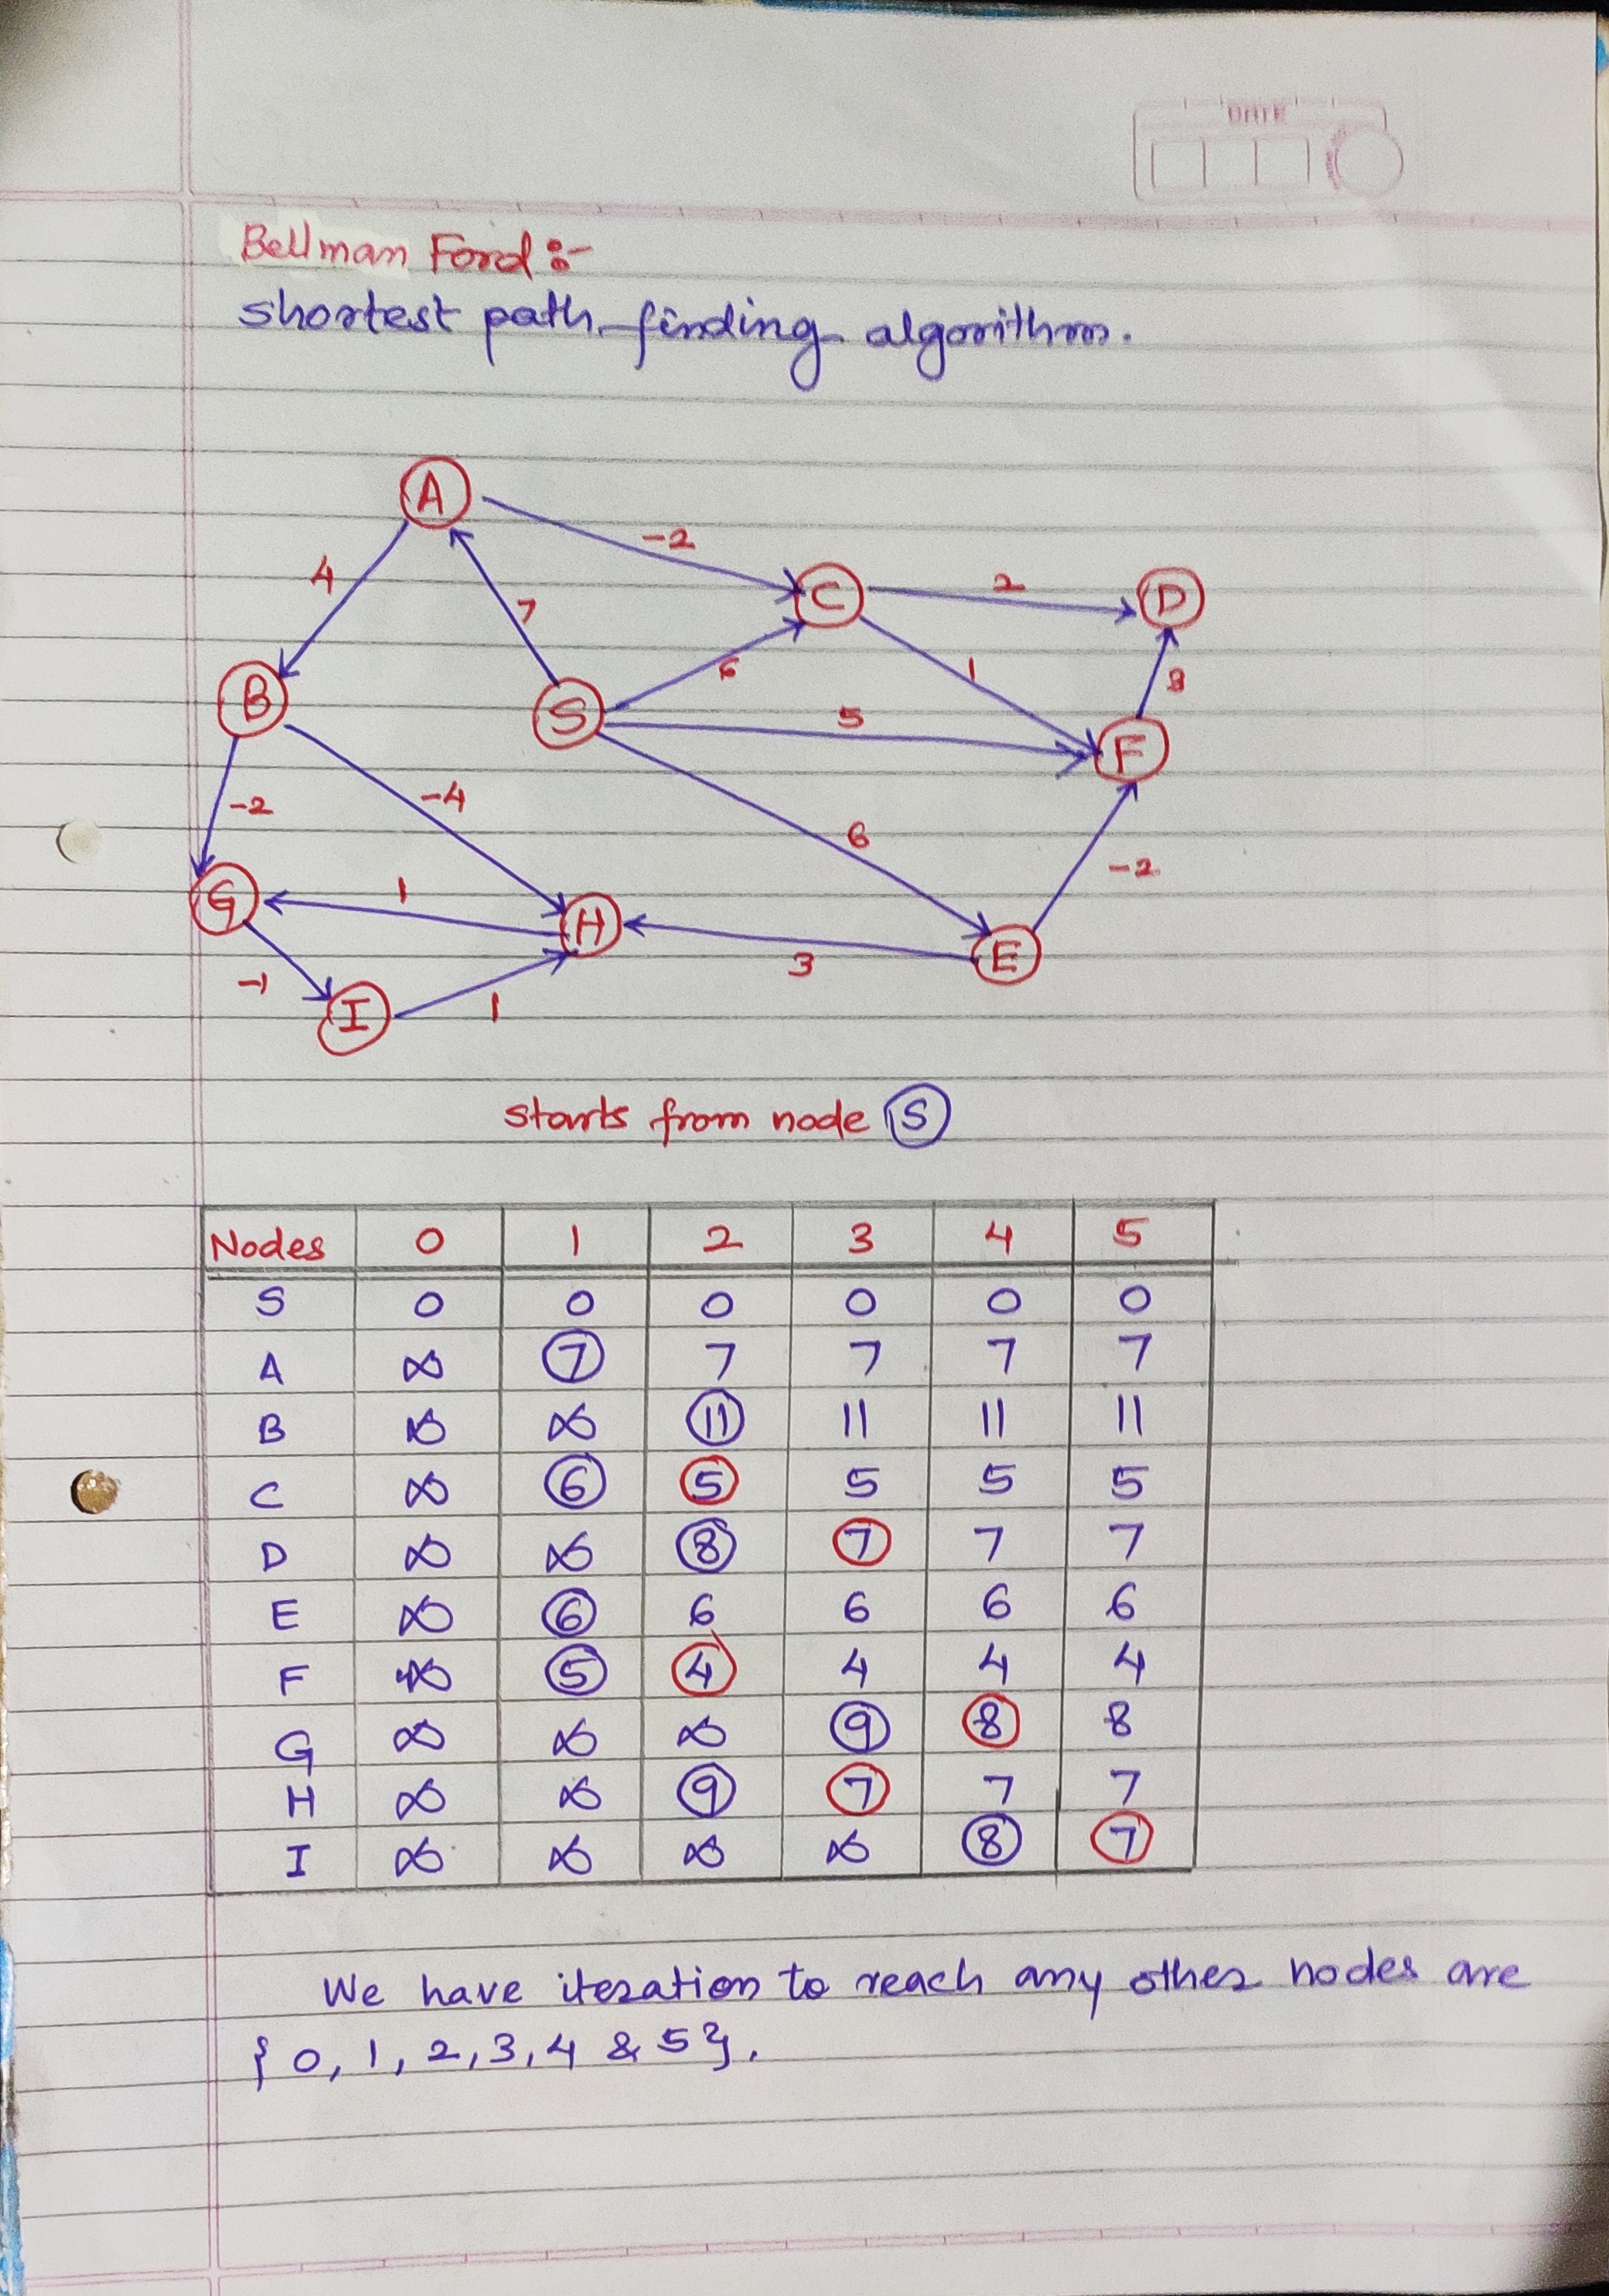 DATE
Bellman Ford :-
shortest path finding algorithm.
A
-2
4
7
C
2
D
6
1
3
B
S
5
F
-2
-4
6
-2
G
1
H
3
E
-1
I
1
starts from node S
Nodes 0 1 2 3 4 5
S 0 0 0 0 0 0
A ∞ 7 7 7 7 7
B ∞ ∞ 11 11 11 11
C ∞ 6 5 5 5 5
D ∞ ∞ 8 7 7 7
E ∞ 6 6 6 6 6
F ∞ 5 4 4 4 4
G ∞ ∞ ∞ 9 8 8
H ∞ ∞ 9 7 7 7
I ∞ ∞ ∞ ∞ 8 7
We have iteration to reach any other nodes are
{ 0, 1, 2, 3, 4 & 5}.